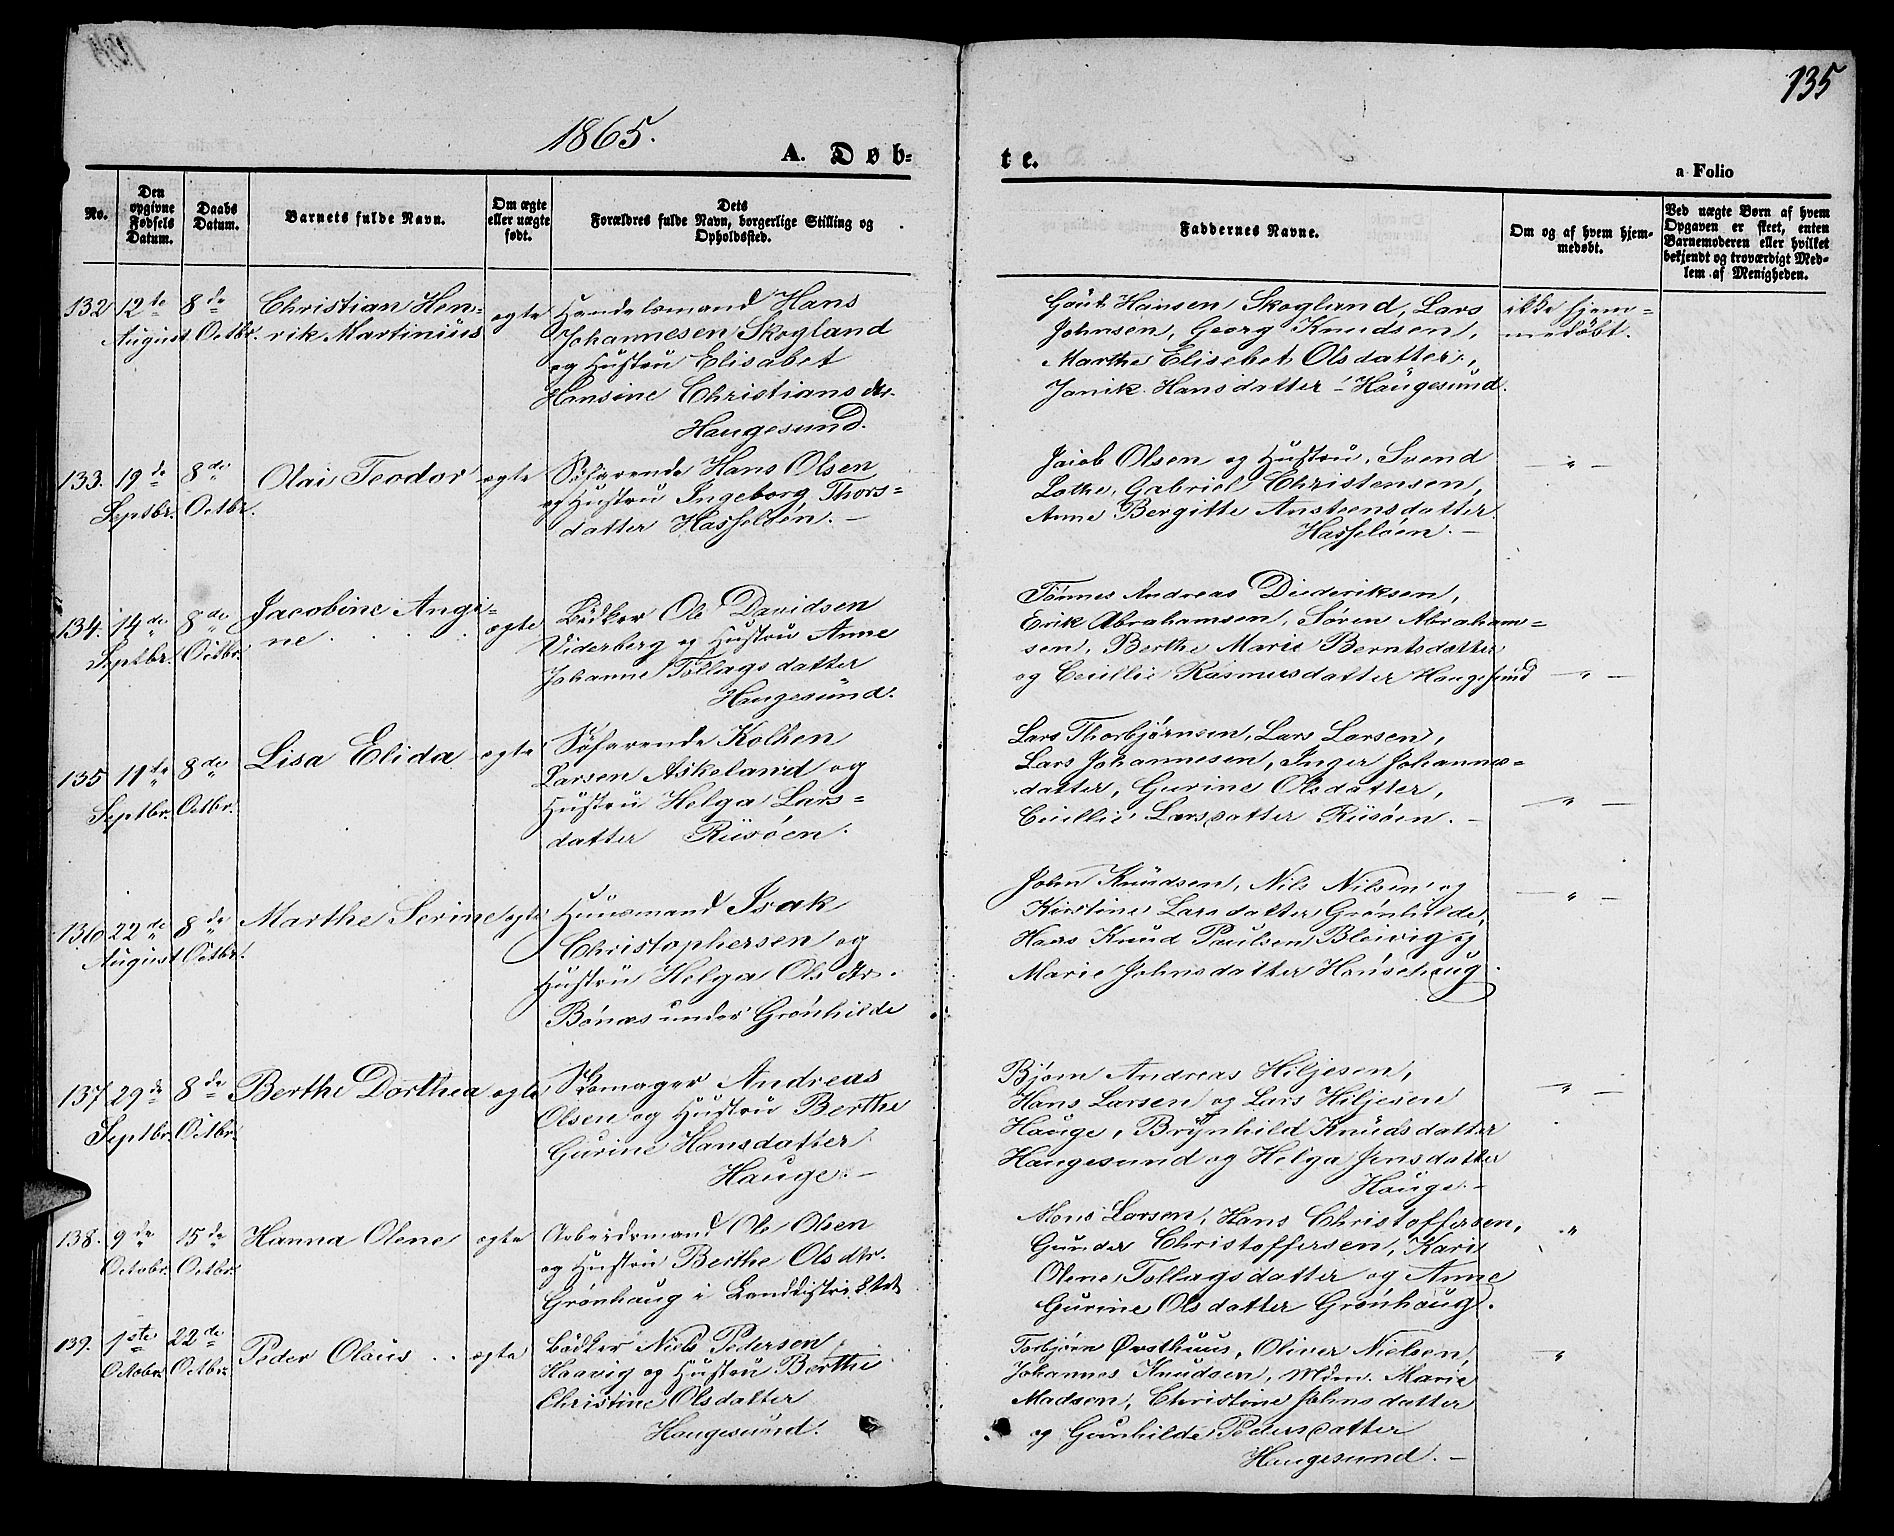 135
1865.
A. Døb-
te.
a Folio
No.
Den opgivne Fødsels Datum.
Daabs Datum.
Barnets fulde Navn.
Om ægte eller uægte født.
Dets Forældres fulde Navn, borgerlige Stilling og Opholdssted.
Faddernes Navne.
Om og af hvem hjemmedøbt.
Ved uægte Børn af hvem Opgaven er skeet, enten Barnemoderen eller hvilket bekjendt og troværdigt Medlem af Menigheden.
132 12te August 8de Octbr. Christian Hen-
rik Martinius
ægte
Handelsmand Hans
Johannesen Skogland
og Hustru Elisabet
Hansine Christiansdtr.
Haugesund.
Gaut Hansen Skogland, Lars
Johnsen, Georg Knudsen,
Marthe Elisebet Olsdatter,
Janik Hansdatter - Haugesund.
ikke hjem=
medøbt.
133. 19de Septbr. 8de Octbr. Olai Teodor ægte
Søfarende Hans Olsen
og Hustru Ingeborg Thors=
datter Hasseløen. -
Jacob Olsen og Hustru, Svend
Lothe, Gabriel Christensen,
Anne Bergitte Anstensdatter
Hasseløen. -
- " -
134. 14de Septbr. 8de Octbr. Jacobine Angi-
ne
ægte
Bødker Ole Davidsen
Viderberg og Hustru Anne
Johanne Tollagsdatter
Haugesund.
Tønnes Andreas Diederiksen,
Erik Abrahamsen, Søren Abraham=
sen, Berthe Marie Berntsdatter
og Cecillie Rasmusdatter Haugesund
- " -
135 11te Septbr. 8de Octbr. Lisa Elida ægte
Søfarende Kolben
Larsen Askeland og
Hustru Helga Lars=
datter Risøen.
Lars Thorbjørnsen, Lars Larsen,
Lars Johannesen, Inger Johannes=
datter, Gurine Olsdatter,
Cecillie Larsdatter Risøen. -
- " -
136 22de August 8de Octbr. Marthe Serine ægte
Huusmand Isak
Christophersen og
Hustru Helga Olsdtr.
Bönæs under Grønhilde
John Knudsen, Nils Nilsen og
Kirstine Larsdatter Grønhilde,
Hans Knud Paulsen Bleivig og
Marie Johnsdatter Hansehaug.
- " -
137 29de Septbr. 8de Octbr. Berthe Dorthea ægte
Skomager Andreas
Olsen og Hustru Berthe
Gurine Hansdatter
Hauge. -
Bjørn Andreas Hiljesen,
Hans Larsen og Lars Hiljesen
Hauge, Brynhild Knudsdatter
Haugesund og Helga Jensdatter
Hauge. -
- " -
138. 9de Octobr. 15de Octbr. Hanna Olene ægte
Arbeidsmand Ole Olsen
og Hustru Berthe Olsdtr.
Grønhaug i Landdistriktet
Mons Larsen, Hans Christoffersen,
Gunder Christoffersen, Kari
Olene Tollagsdatter og Anne
Gurine Olsdatter Grønhaug.
"
139. 1ste Octobr. 22de Octbr. Peder Olaus . . ægte
Bødker Niels Pedersen
Haavig og Hustru Berthe
Christine Olsdatter
Haugesund.
Torbjørn Østhuus, Oliver Nielsen,
Johannes Knudsen, Mdm. Marie
Madsen, Christine Johnsdatter
og Gunhilde Pedersdatter
Haugesund. -
- "